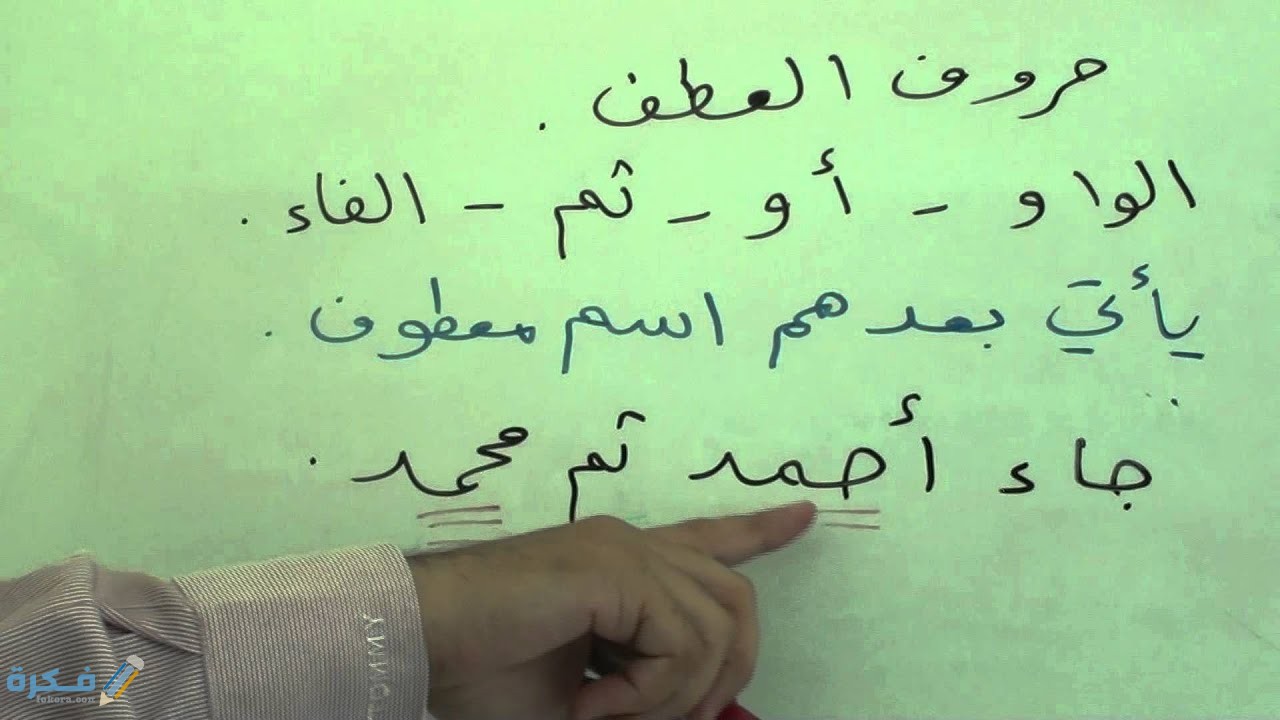 حروف العطف .
الواو - أو - ثم - الفاء .
يأتي بعدهم اسم معطوف .
جاء أحمد ثم محمد .
TOMMY
فكرة
fakera.com